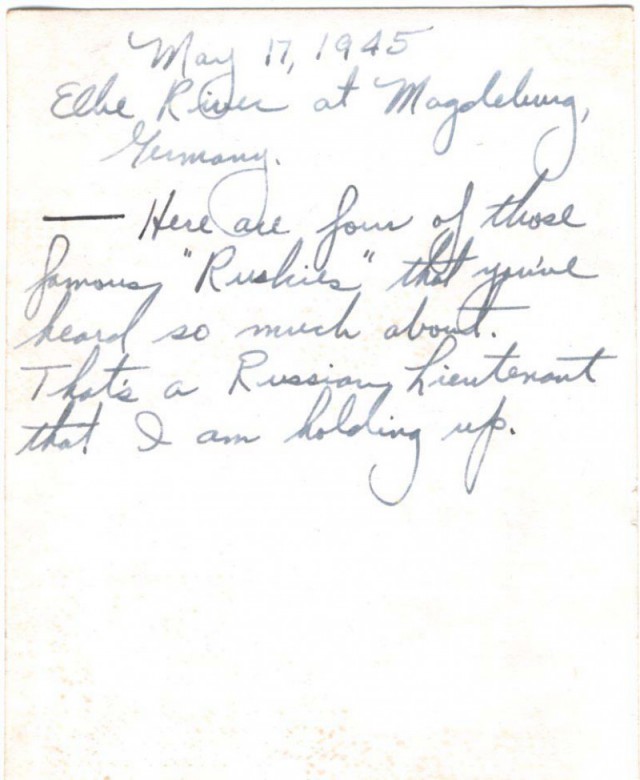 May 17, 1945
Elbe River at Magdeburg,
Germany.
— Here are four of those
famous "Ruskies" that you've
heard so much about.
That's a Russian Lieutenant
that I am holding up.